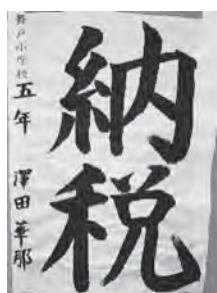 納税
舞戸小学校
五年 澤田 華那